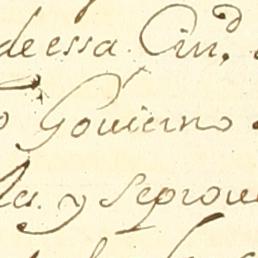 de essa Ciud.
Govierno
les. y se prove